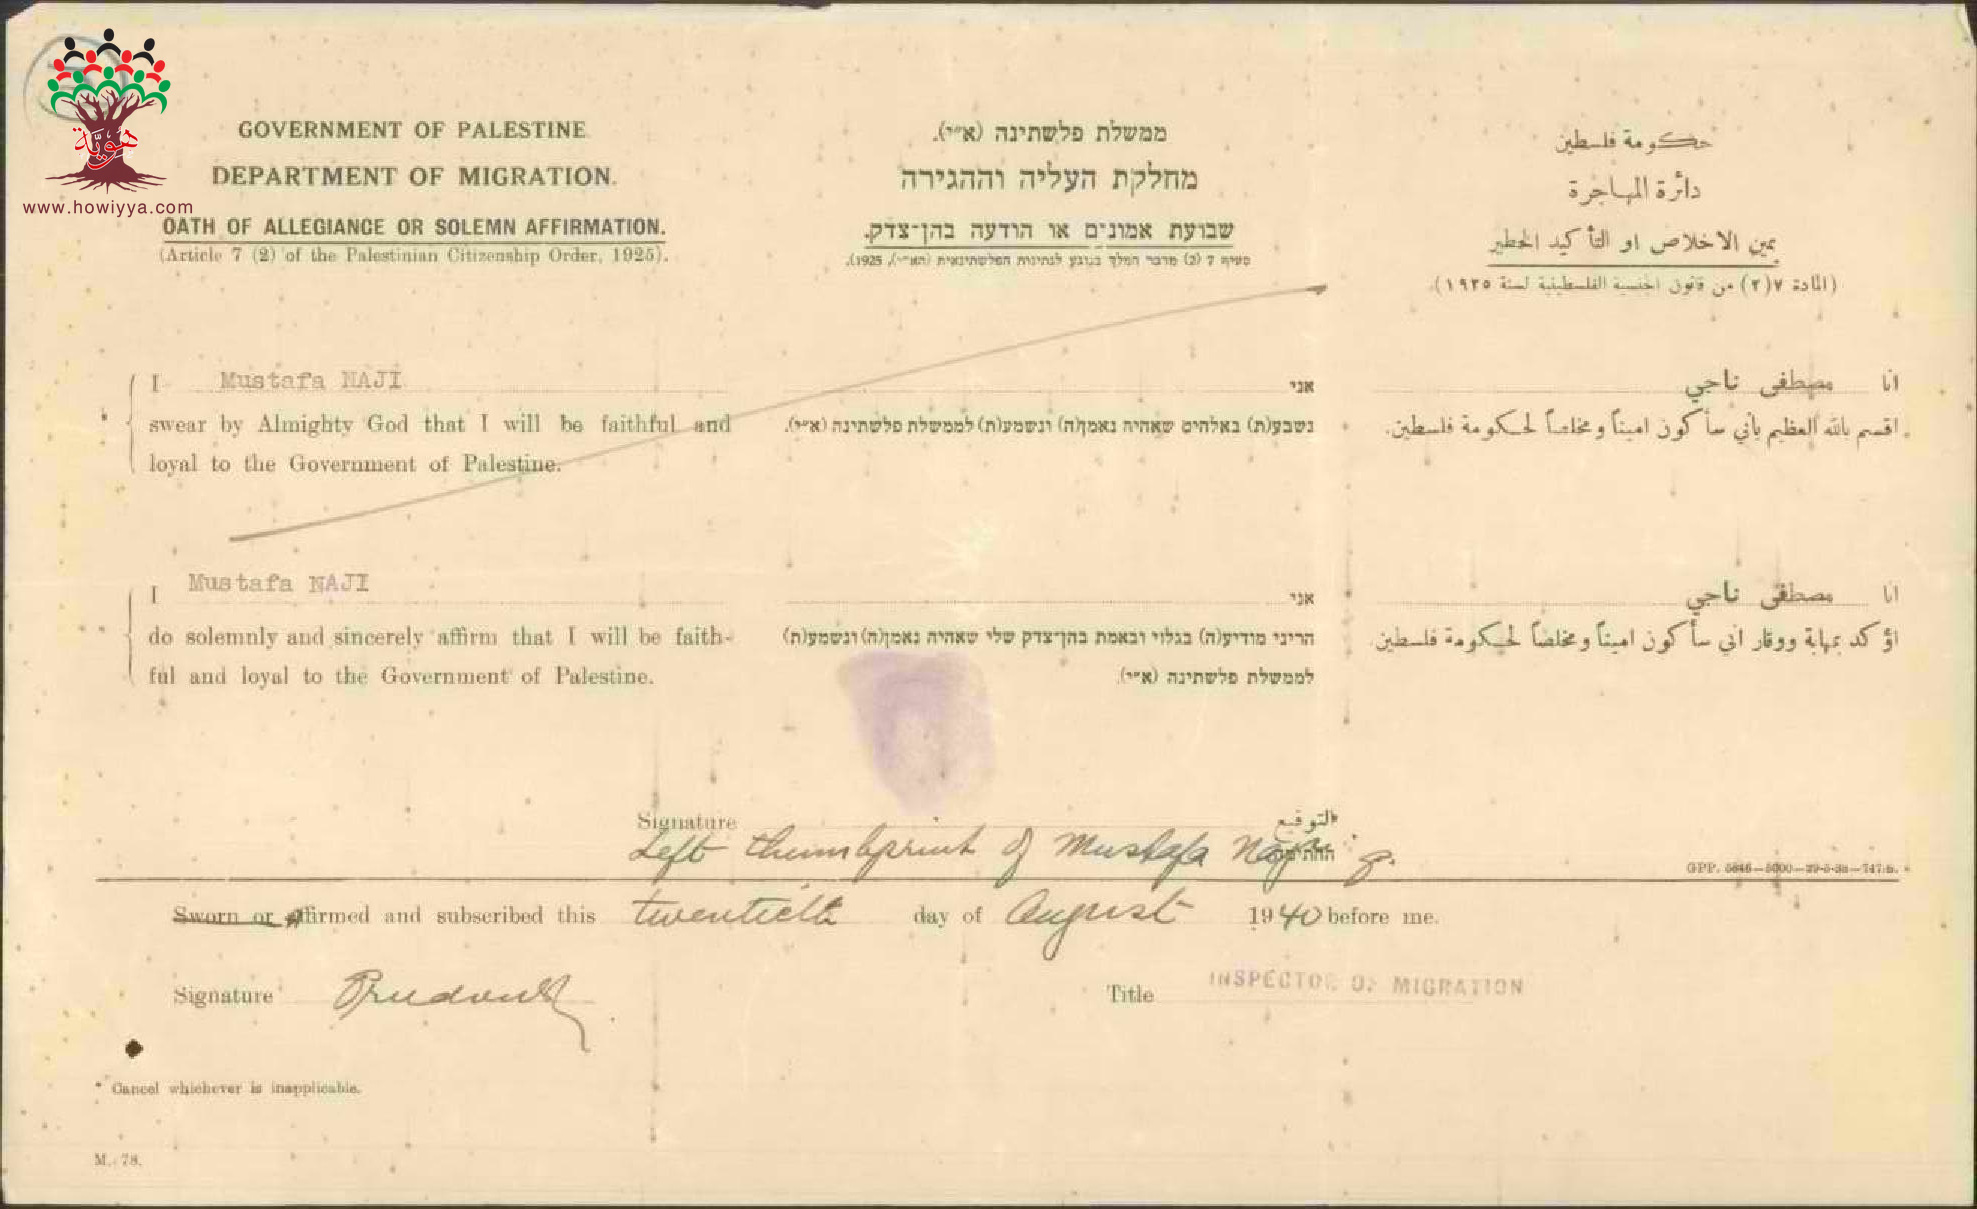 هوية
www.howiyya.com
GOVERNMENT OF PALESTINE.
DEPARTMENT OF MIGRATION.
OATH OF ALLEGIANCE OR SOLEMN AFFIRMATION.
(Article 7 (2) of the Palestinian Citizenship Order, 1925).
ממשלת פלשתינה (א״י).
מחלקת העליה וההגירה
שבועת אמונים או הודעה בהן־צדק.
סעיף 7 (2) מדבר המלך בנוגע לנתינות הפלשתינאית (הא״י), 1925).
حكومة فلسطين
دائرة المهاجرة
يمين الاخلاص او التأكيد الخطير
(المادة ٧(٢) من قانون الجنسية الفلسطينية لسنة ١٩٢٥).
I Mustafa NAJI
* swear by Almighty God that I will be faithful and
loyal to the Government of Palestine.
אני
נשבע(ת) באלהים שאהיה נאמן(ה) ונשמע(ת) לממשלת פלשתינה (א״י).
انا مصطفى ناجي
اقسم بالله العظيم بأني سأكون اميناً ومخلصاً لحكومة فلسطين.
I Mustafa NAJI
* do solemnly and sincerely affirm that I will be faith-
ful and loyal to the Government of Palestine.
אני
הריני מודיע(ה) בגלוי ובאמת בהן־צדק שלי שאהיה נאמן(ה) ונשמע(ת)
לממשלת פלשתינה (א״י).
انا مصطفى ناجي
اؤكد بمهابة ووقار اني سأكون اميناً ومخلصاً لحكومة فلسطين.
Signature التوقيع
Left thumbprint of Mustafa Naji
GPP. 5846—5000—29-5-38—747/S.
Sworn or affirmed and subscribed this twentieth day of August 1940 before me.
Signature
Title INSPECTOR OF MIGRATION
* Cancel whichever is inapplicable.
M. 78.